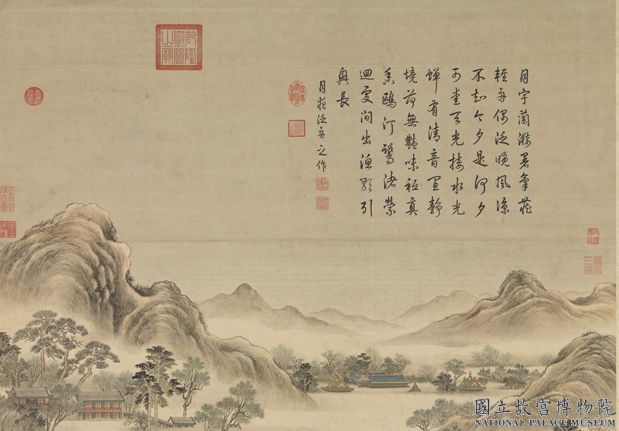 月宇蘭漪暑氣
輕舟偶泛晚風涼
不知今夕是何夕
可愛天光接水光
蟬有清音宜靜
境荷無艷味祗真
香鷗汀鷺渚縈
迴處間出漁引
興長
月泛舟之作
國立故宮博物院
NATIONAL PALACE MUSEUM